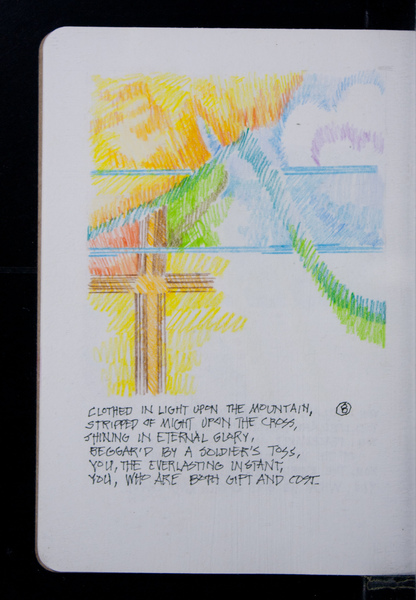 CLOTHED IN LIGHT UPON THE MOUNTAIN, B
STRIPPED OF MIGHT UPON THE CROSS,
SHINING IN ETERNAL GLORY,
BEGGAR'D BY A SOLDIER'S TOSS,
YOU, THE EVERLASTING INSTANT,
YOU, WHO ARE BOTH GIFT AND COST.